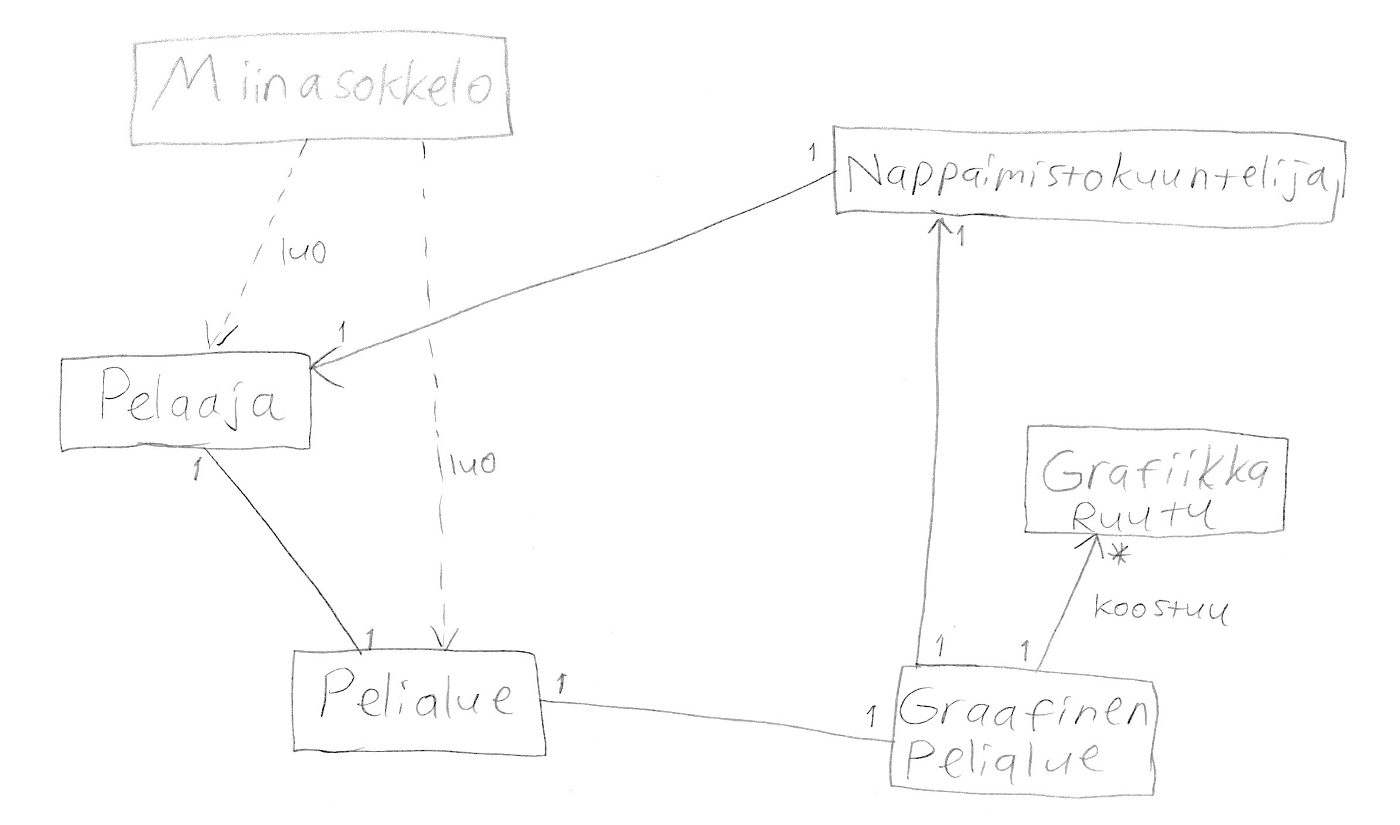 Miinasokkelo
1
Nappaimistokuuntelija
1
luo
1
Pelaaja
1
luo
Grafiikka
Ruutu
*
koostuu
1
1
1
Pelialue
1
1
Graafinen
Pelialue